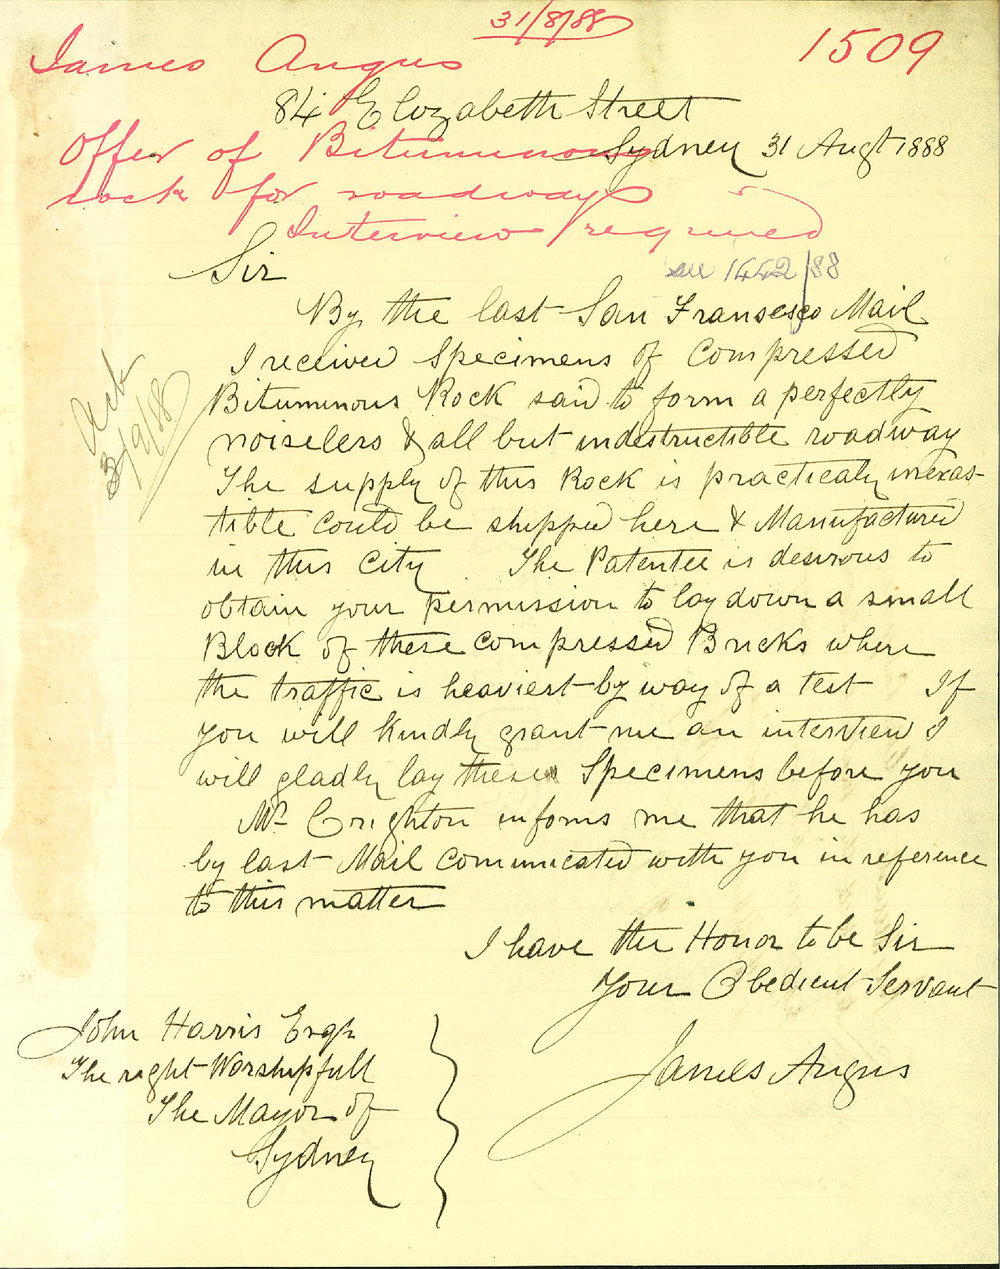 31/8/88
James Angus
1509
84 Elizabeth Street
Offer of Bituminous
Sydney 31 Augt 1888
rock for roadways
Interview required
Sir
see 1442/88
By the last San Fransesco Mail
I received Specimens of Compressed
Bituminous Rock said to form a perfectly
noiseless & all but indestructible roadway
The supply of this Rock is practicaly inexas-
tible could be shipped here & Manufactured
in this City The Patentee is desirous to
obtain your permission to lay down a small
Block of these Compressed Bricks where
the traffic is heaviest by way of a test If
you will kindly grant me an interview I
will gladly lay these Specimens before you
Mr Crighton informs me that he has
by last Mail Communicated with you in reference
to this matter
Ack
3/9/88
I have the Honor to be Sir
Your Obedient Servant
James Angus
John Harris Esqr
The right Worshipfull
The Mayor of
Sydney